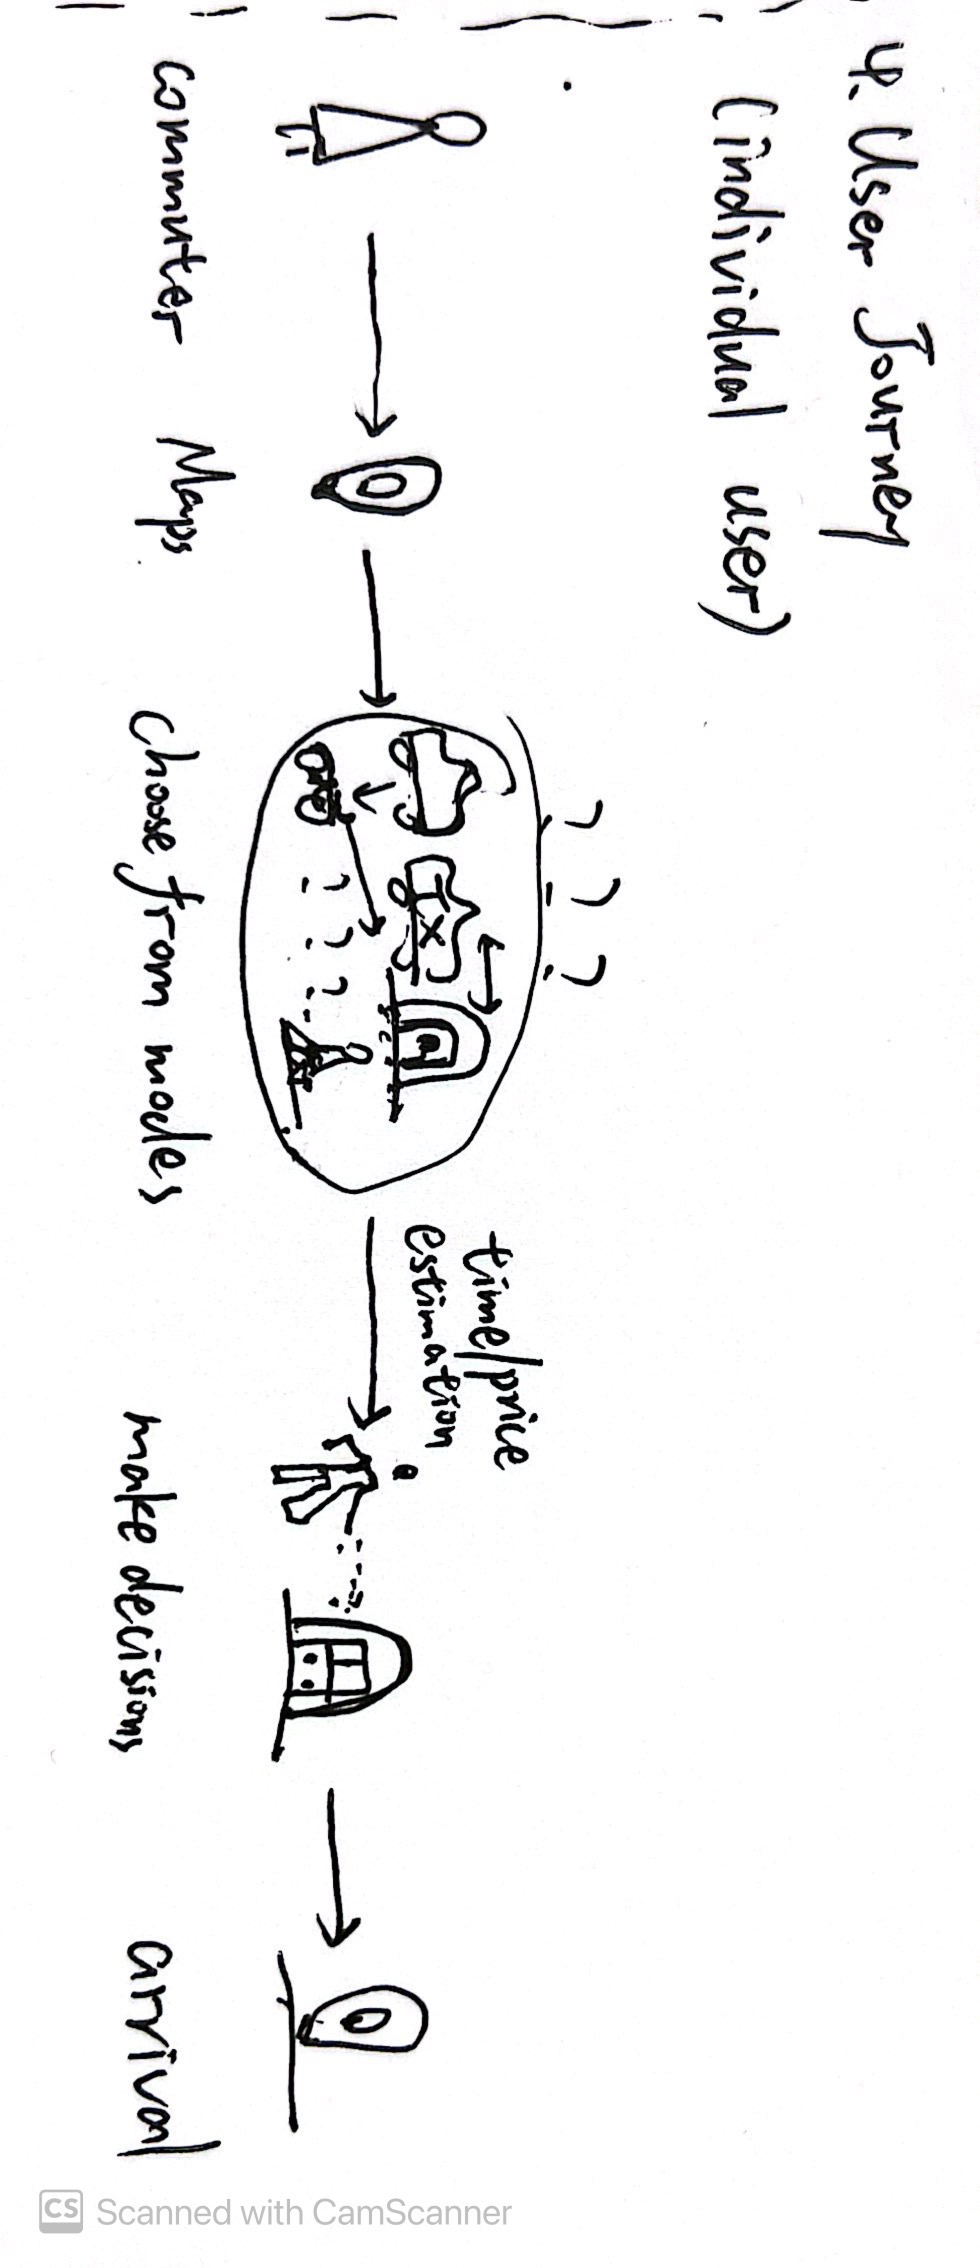 4. User Journey
(individual user)
? ? ?
time/price
estimation
TX
? ? ?
commuter
Maps
choose from modes
make decisions
arrival
CS Scanned with CamScanner